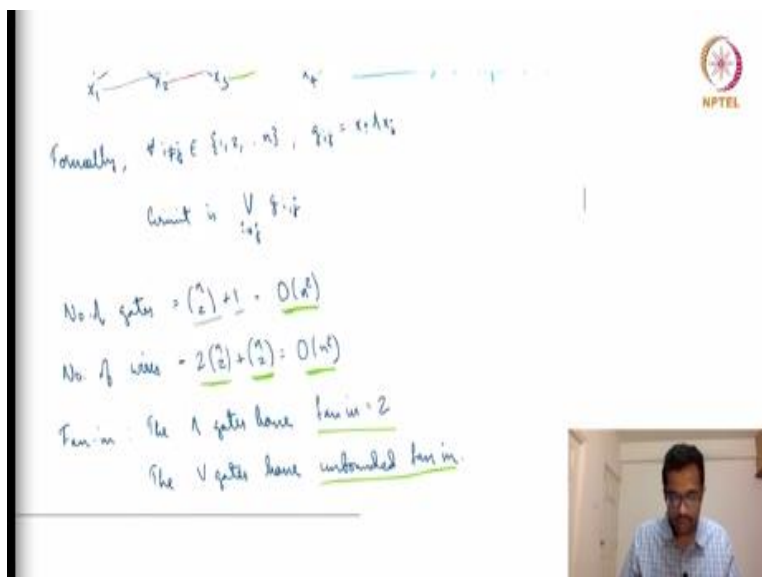 x₁ x₂ x₃ x₄
NPTEL
Formally, ∀ i≠j ∈ {1, 2, .. n}, g_{ij} = x_i ∧ x_j
Circuit is ⋁_{i≠j} g_{ij}
No. of gates = (n 2) + 1 = O(n²)
No. of wires = 2(n 2) + (n 2) = O(n²)
Fan-in : The ∧ gates have fan in = 2
The ∨ gates have unbounded fan in.